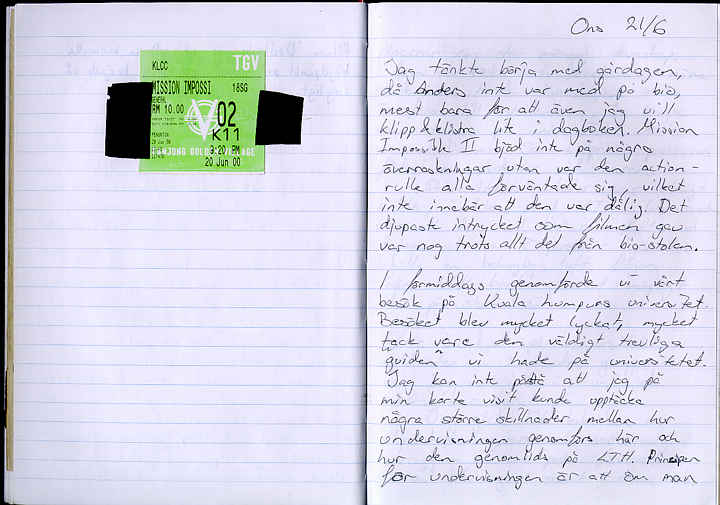 KLCC
TGV
MISSION IMPOSSI
18SG
GENERAL
RM 10.00
02
K11
3:20 PM
TANJUNG GOLDEN VILLAGE
20 Jun 00
Ons 21/6
Jag tänkte börja med gårdagen,
då Anders inte var med på bio,
mest bara för att även jag vill
klipp & klistra lite i dagboken. Mission
Impossible II bjöd inte på några
överraskningar utan var den action-
rulle alla förväntade sig, vilket
inte innebär att den var dålig. Det
djupaste intrycket som filmen gav
var nog trots allt det från bio-stolen.
I förmiddags genomförde vi vårt
besök på Kuala Lumpurs universitet.
Besöket blev mycket lyckat, mycket
tack vare den väldigt trevliga
"guiden" vi hade på universitetet.
Jag kan inte påstå att jag på
min korta visit kunde upptäcka
några större skillnader mellan hur
undervisningen genomförs här och
hur den genomlids på LTH. Principen
för undervisningen är att om man